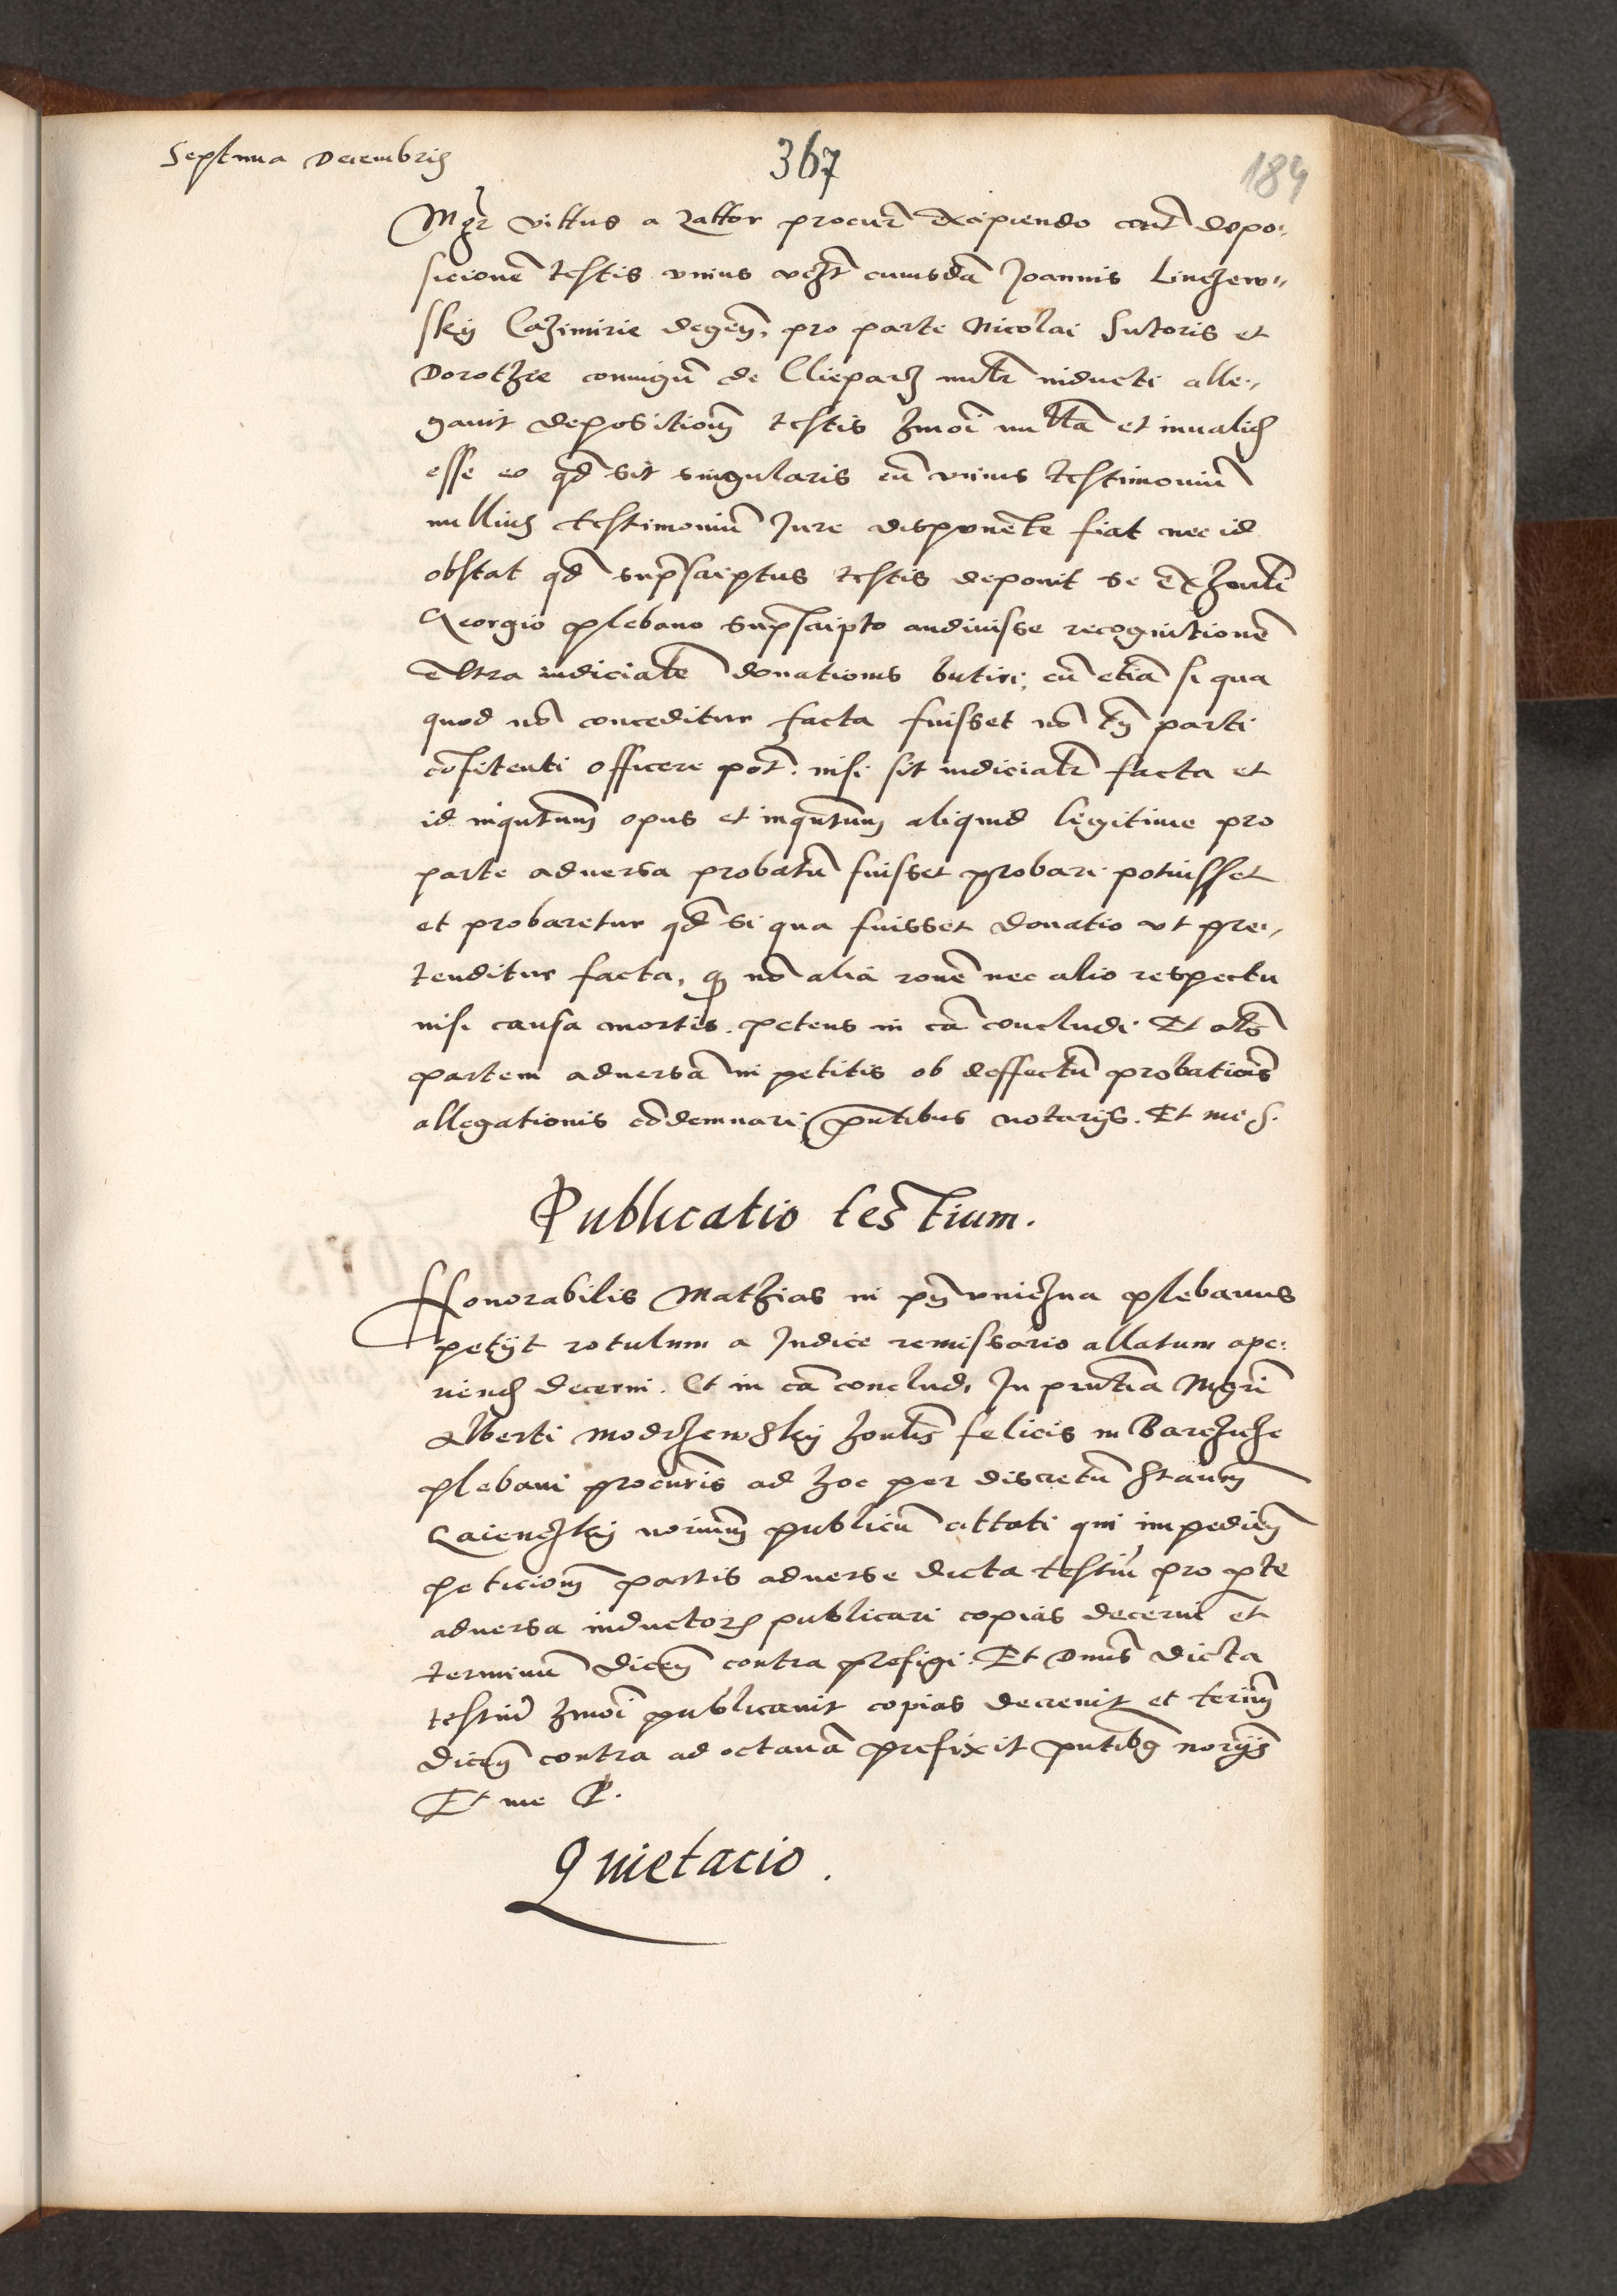 Septima Decembris
367
184
Mgr vittus a Rattor procur̃ excipiendo cont̃ depo„
sicionẽ testis vnius vcz̃t cuiusdã Joannis Linczew„
sky Cazimirie degen̄. pro parte Nicolai Sutoris et
Dorothee coniugũ de Clieparz mĩtr inducti alle„
gavit depositionẽ testis hmoi nullã et inualid̃
esse eo qd̃ sit singularis cũ vnius testimoniũ
nullius testimoniũ Jure disponẽte fiat nec id
obstat qd̃ supᵃscriptus testis deponit se ex honli
Georgio plebano supᵃscripto audiuisse recognitionẽ
extra iudicialẽ donationis butiri, cũ etiã si qua
quod nõ conceditur facta fuisset nõ tñ parti
cõfitenti officere pot̃. nisi sit iudicialr̃ facta et
id inqutum opus et inqutum aliquid legitime pro
parte aduersa probatũ fuisset probari potuisset
et probaretur qd̃ si qua fuisset donatio vt pre„
tenditur facta, q nõ alia ronẽ nec alio respectu
nisi causa mortis. petens in cã concludi Et als̃
partem aduersã in petitis ob deffectũ probationis
allegationis cõdemnari pñtibus notarys. Et me S.
Publicatio testium.
Honorabilis Mathias in pñ vniezna plebanus
petyt rotulum a Judice remissario allatum ape„
riend̃ decerni. Et in cã conclud, In pñtia Mgri
Alberti modrzewsky honlis̃ felicis in Barzicze
plebani procuris̃ ad hoc per discretũ Staum
Laiensky norium publicũ cittati qui impedien̄
peticionẽ partis aduerse dicta testiũ pro pte
aduersa inductor̃ publicari copias decerni et
terminũ dicen̄ contra prefigi. Et Dnus̃ dicta
testiũ hmoi publicauit copias decreuit et teriũ
dicen̄ contra ad octauã prefixit pñtibg noryis̃
Et me P.
Quietacio.